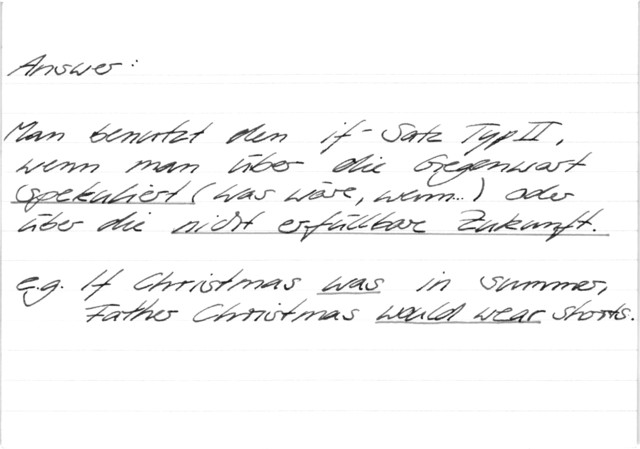 Answer:
Man benutzt den if-Satz Typ II,
wenn man über die Gegenwart
spekuliert (was wäre, wenn...) oder
über die nicht erfüllbare Zukunft.
e.g. If Christmas was in summer,
Father Christmas would wear shorts.